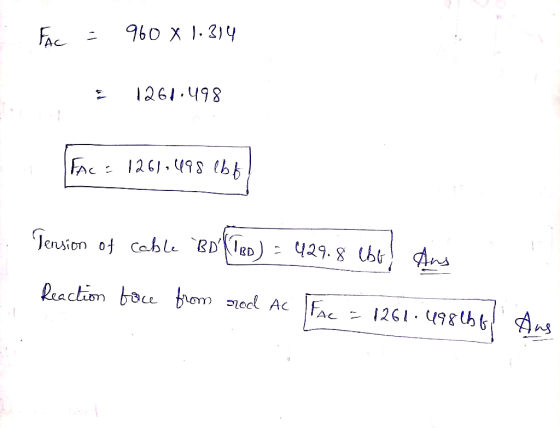 FAC = 960 X 1.314
= 1261.498
FAC = 1261.498 lbf
Tension of cable 'BD' (TBD) = 429.8 lbf Ans
Reaction force from rod AC FAC = 1261.498 lbf Ans